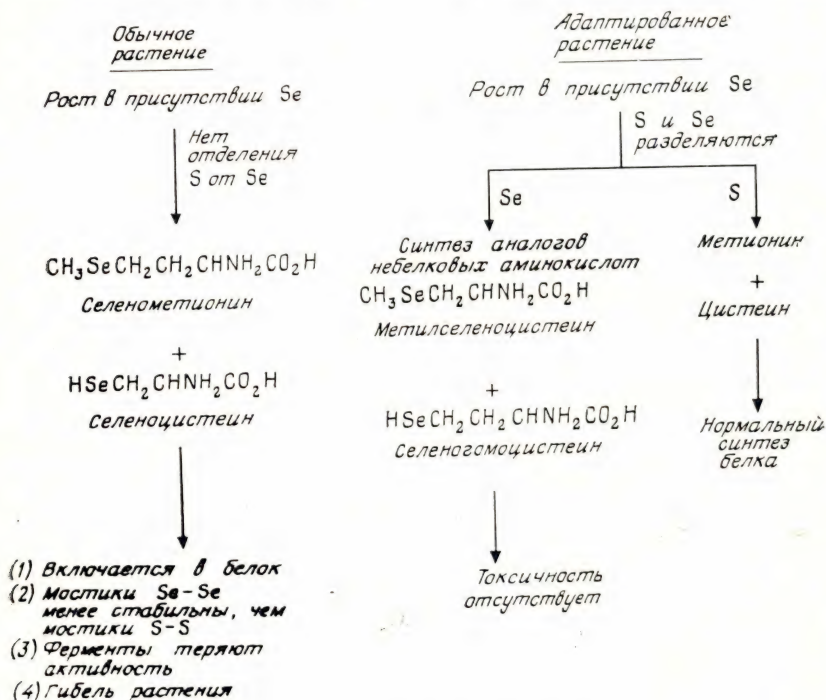 Обычное
растение
Рост в присутствии Se
Нет
отделения
S от Se
CH₃SeCH₂CH₂CHNH₂CO₂H
Селенометионин
+
HSeCH₂CHNH₂CO₂H
Селеноцистеин
(1) Включается в белок
(2) Мостики Se–Se
менее стабильны, чем
мостики S–S
(3) Ферменты теряют
активность
(4) Гибель растения
Адаптированное
растение
Рост в присутствии Se
S и Se
разделяются
Se
Синтез аналогов
небелковых аминокислот
CH₃SeCH₂CHNH₂CO₂H
Метилселеноцистеин
+
HSeCH₂CH₂CHNH₂CO₂H
Селеногомоцистеин
Токсичность
отсутствует
S
Метионин
+
Цистеин
Нормальный
синтез
белка